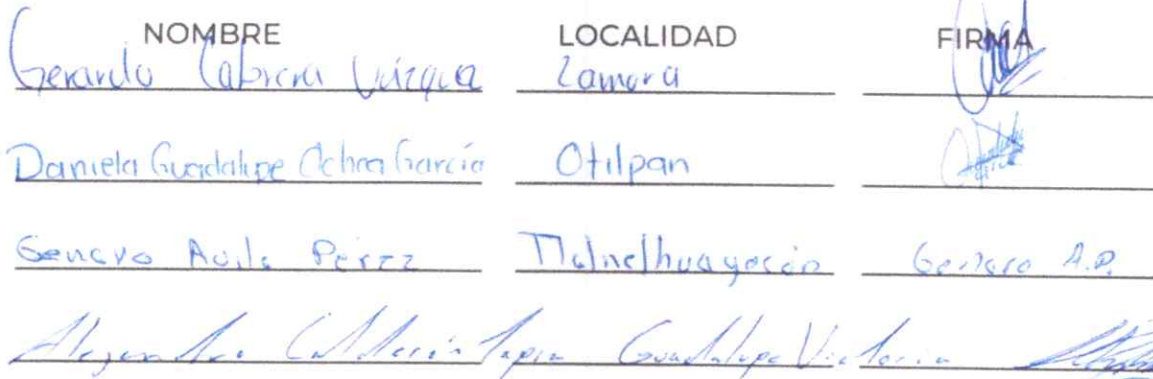 NOMBRE LOCALIDAD FIRMA
Gerardo Cabrera Vázquez Zamora
Daniela Guadalupe Ochoa García Otilpan
Genaro Avila Pérez Tlalnelhuayocan Genaro A.P.
Alejandro Calderón Tapia Guadalupe Victoria